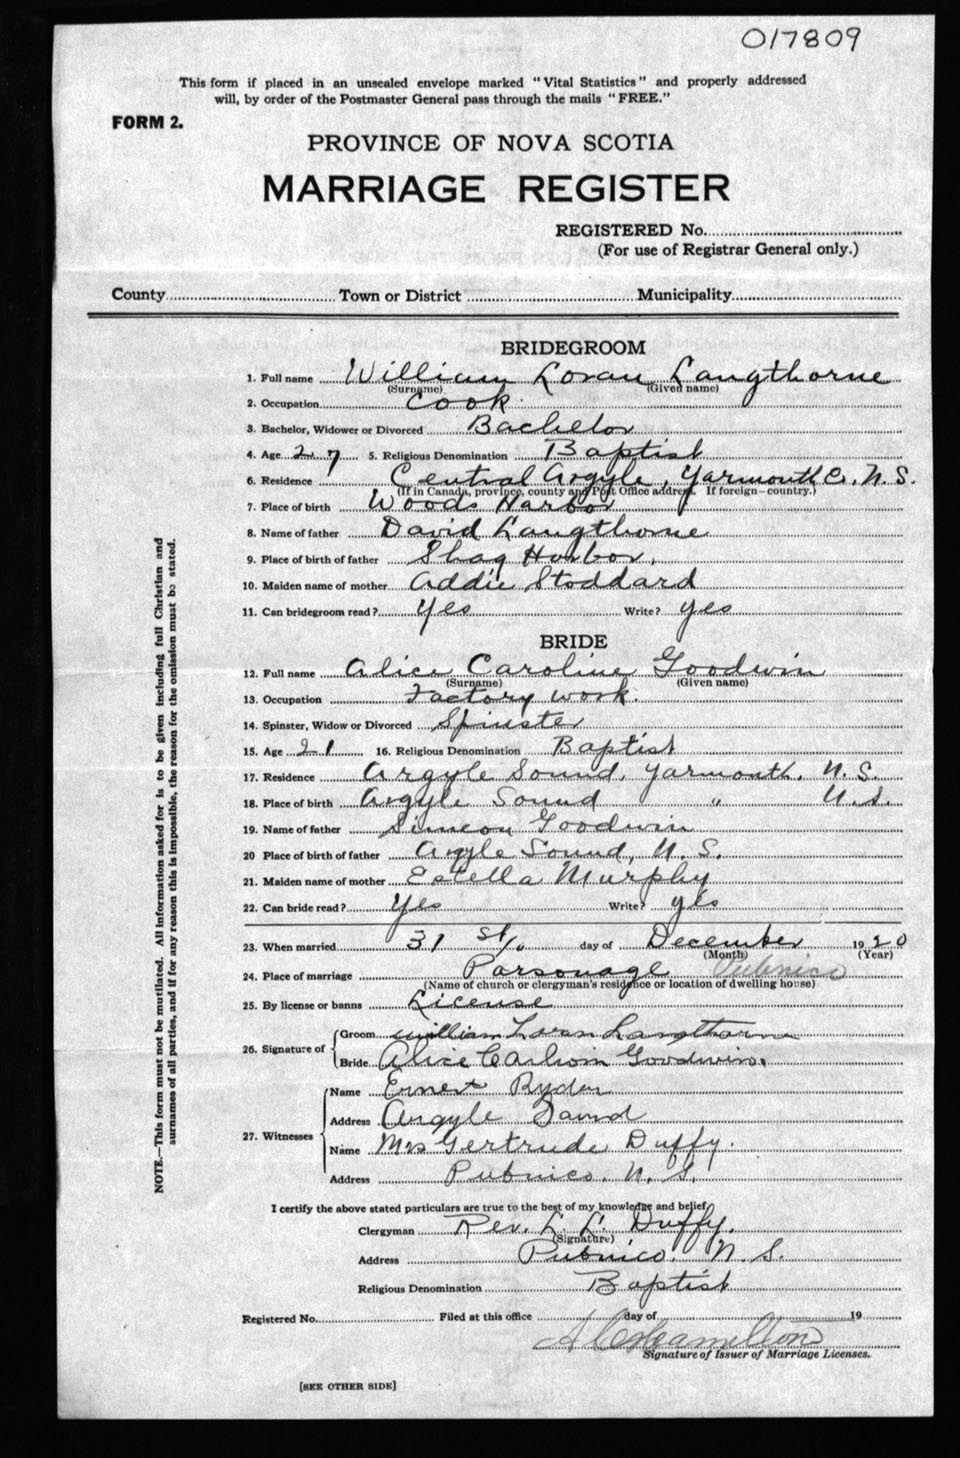 017809
This form if placed in an unsealed envelope marked "Vital Statistics" and properly addressed
will, by order of the Postmaster General pass through the mails "FREE."
FORM 2.
PROVINCE OF NOVA SCOTIA
MARRIAGE REGISTER
REGISTERED No.
(For use of Registrar General only.)
County Town or District Municipality
BRIDEGROOM
1. Full name William Loran Langthorne
(Surname) (Given name)
2. Occupation Cook
3. Bachelor, Widower or Divorced Bachelor
4. Age 27 5. Religious Denomination Baptist
6. Residence Central Argyle, Yarmouth Co. N.S.
(If in Canada, province, county and Post Office address. If foreign—country.)
7. Place of birth Woods Harbor
8. Name of father David Langthorne
9. Place of birth of father Shag Harbor.
10. Maiden name of mother Addie Stoddard
11. Can bridegroom read? Yes Write? yes
BRIDE
12. Full name Alice Caroline Goodwin
(Surname) (Given name)
13. Occupation Factory work.
14. Spinster, Widow or Divorced Spinster
15. Age 21 16. Religious Denomination Baptist
17. Residence Argyle Sound, Yarmouth. N.S.
18. Place of birth Argyle Sound " N.S.
19. Name of father Simeon Goodwin
20 Place of birth of father Argyle Sound, N.S.
21. Maiden name of mother Estella Murphy
22. Can bride read? Yes Write? yes
23. When married 31 st/. day of December 1920
(Month) (Year)
24. Place of marriage Parsonage Pubnico
(Name of church or clergyman's residence or location of dwelling house)
25. By license or banns License
26. Signature of Groom William Loran Langthorne
Bride Alice Carliom Goodwin.
27. Witnesses
Name Ernest Ryder
Address Argyle Sound
Name Mrs Gertrude Duffy.
Address Pubnico. N. S.
I certify the above stated particulars are true to the best of my knowledge and belief
Clergyman Rev. L. L. Duffy.
(Signature)
Address Pubnico. N S.
Religious Denomination Baptist
Registered No. Filed at this office day of 19
Hamilton
Signature of Issuer of Marriage Licenses.
[SEE OTHER SIDE]
NOTE.—This form must not be mutilated. All information asked for is to be given including full Christian and
surnames of all parties, and if for any reason this is impossible, the reason for the omission must be stated.